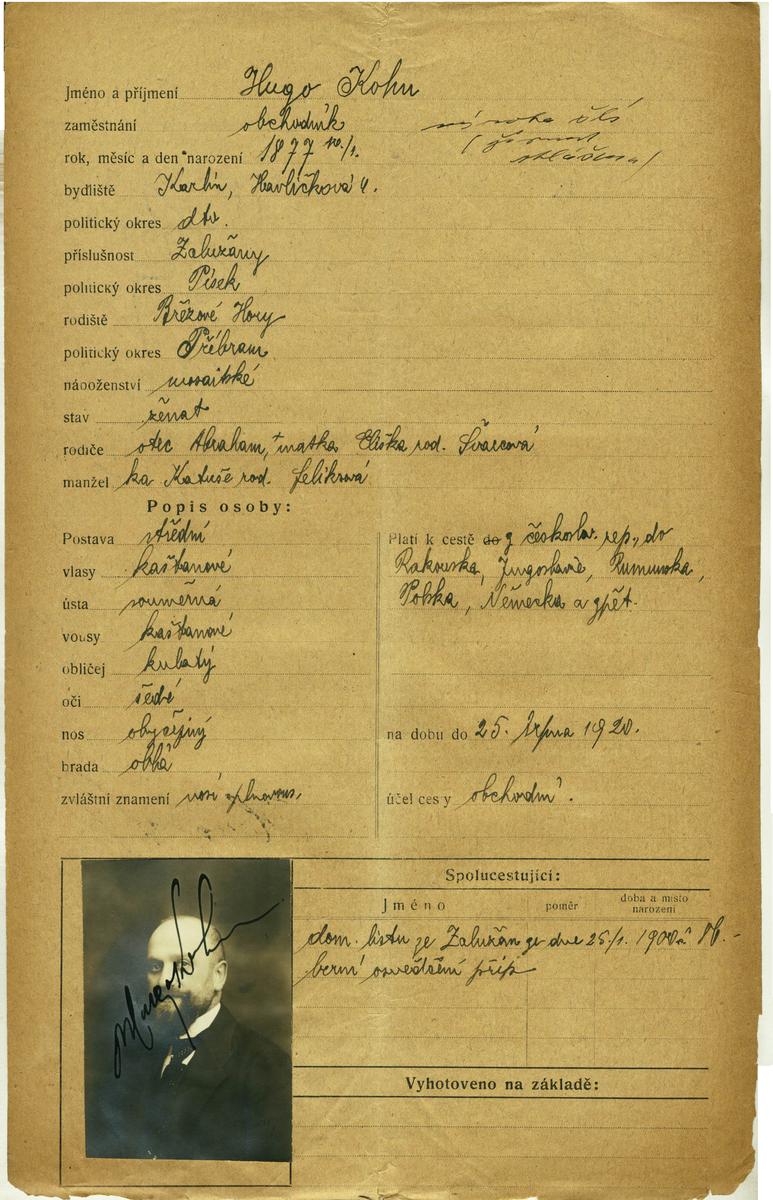 Jméno a příjmení Hugo Kohn
zaměstnání obchodník
rok, měsíc a den narození 1877 10./1.
bydliště Karlín, Havlíčkova 4.
politický okres dto.
příslušnost Zalužany
politický okres Písek
rodiště Březové Hory
politický okres Příbram
náboženství mosaitské
stav ženat
rodiče otec Abraham, +matka Eliška rod. Švarcová
manžel ka Katuše rod. Feliksová
Popis osoby:
Postava střední
vlasy kaštanové
ústa souměrná
vousy kaštanové
obličej kulatý
oči šedé
nos obyčejný
brada oblá
zvláštní znamení nosí plnovous.
Platí k cestě do z českoslov. rep., do
Rakouska, Jugoslavie, Rumunska,
Polska, Německa a zpět.
na dobu do 25. srpna 1920.
účel cesty obchodní.
Hugo Kohn
Spolucestující:
Jméno poměr doba a místo narození
dom. listu ze Zalužan ze dne 25./1. 1900
berní osvědčení přip
Vyhotoveno na základě: